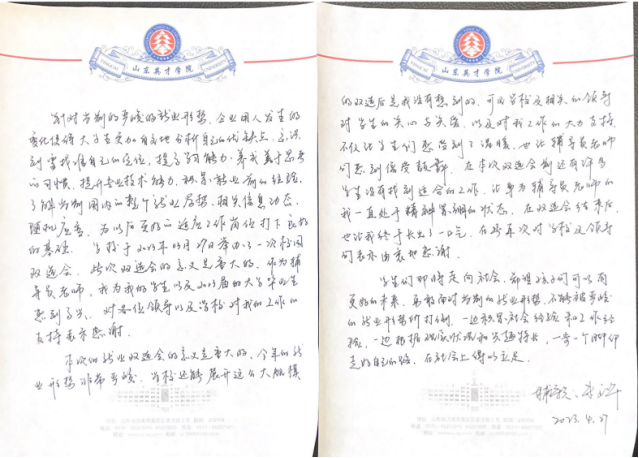 山东英才学院
针对当前的严峻的就业形势,企业用人发生的
变化促使大学生更加自主地分析自己的优缺点,意识
到要找准自己的定位,提高学习能力,养成善于思考
的习惯,提升专业技术能力,积累就业前的经验,
了解当前国内的整个就业局势,相关信息动态,
随机应变,为以后更好的适应工作岗位打下良好
的基础。学校于2023年03月29日举办了一次校园
双选会,此次双选会的意义是重大的。作为辅
导员老师,我为我的学生以及2023届的大学毕业生
感到高兴,对各位领导以及学校对我们工作的
支持表示感谢。
本次的就业双选会的意义是重大的,今年的就
业形势非常严峻,学校还能展开这么大规模
山东英才学院
的双选会是我没有想到的,可见学校及相关的领导
对学生的关心与关爱,以及对我工作的大力支持
不仅让学生们感受到了温暖,也让辅导员老师
们感到倍受鼓舞。在本次双选会前还有许多
学生没有找到适合的工作,让身为辅导员老师的
我一直处于精神紧绷的状态,在双选会结束后,
也让我终于长出了一口气,在此再次对学校及领导
们表示由衷地感谢。
学生们即将走向社会,希望孩子们可以有
更好的未来,在面对当前的就业形势,不能被严峻
的就业形势所打倒,一边积累社会经验和工作经
验,一边根据现实状况和兴趣特长,一步一个脚印
走好自己的路,在社会上得以立足。
辅导员:李
2023.4.27